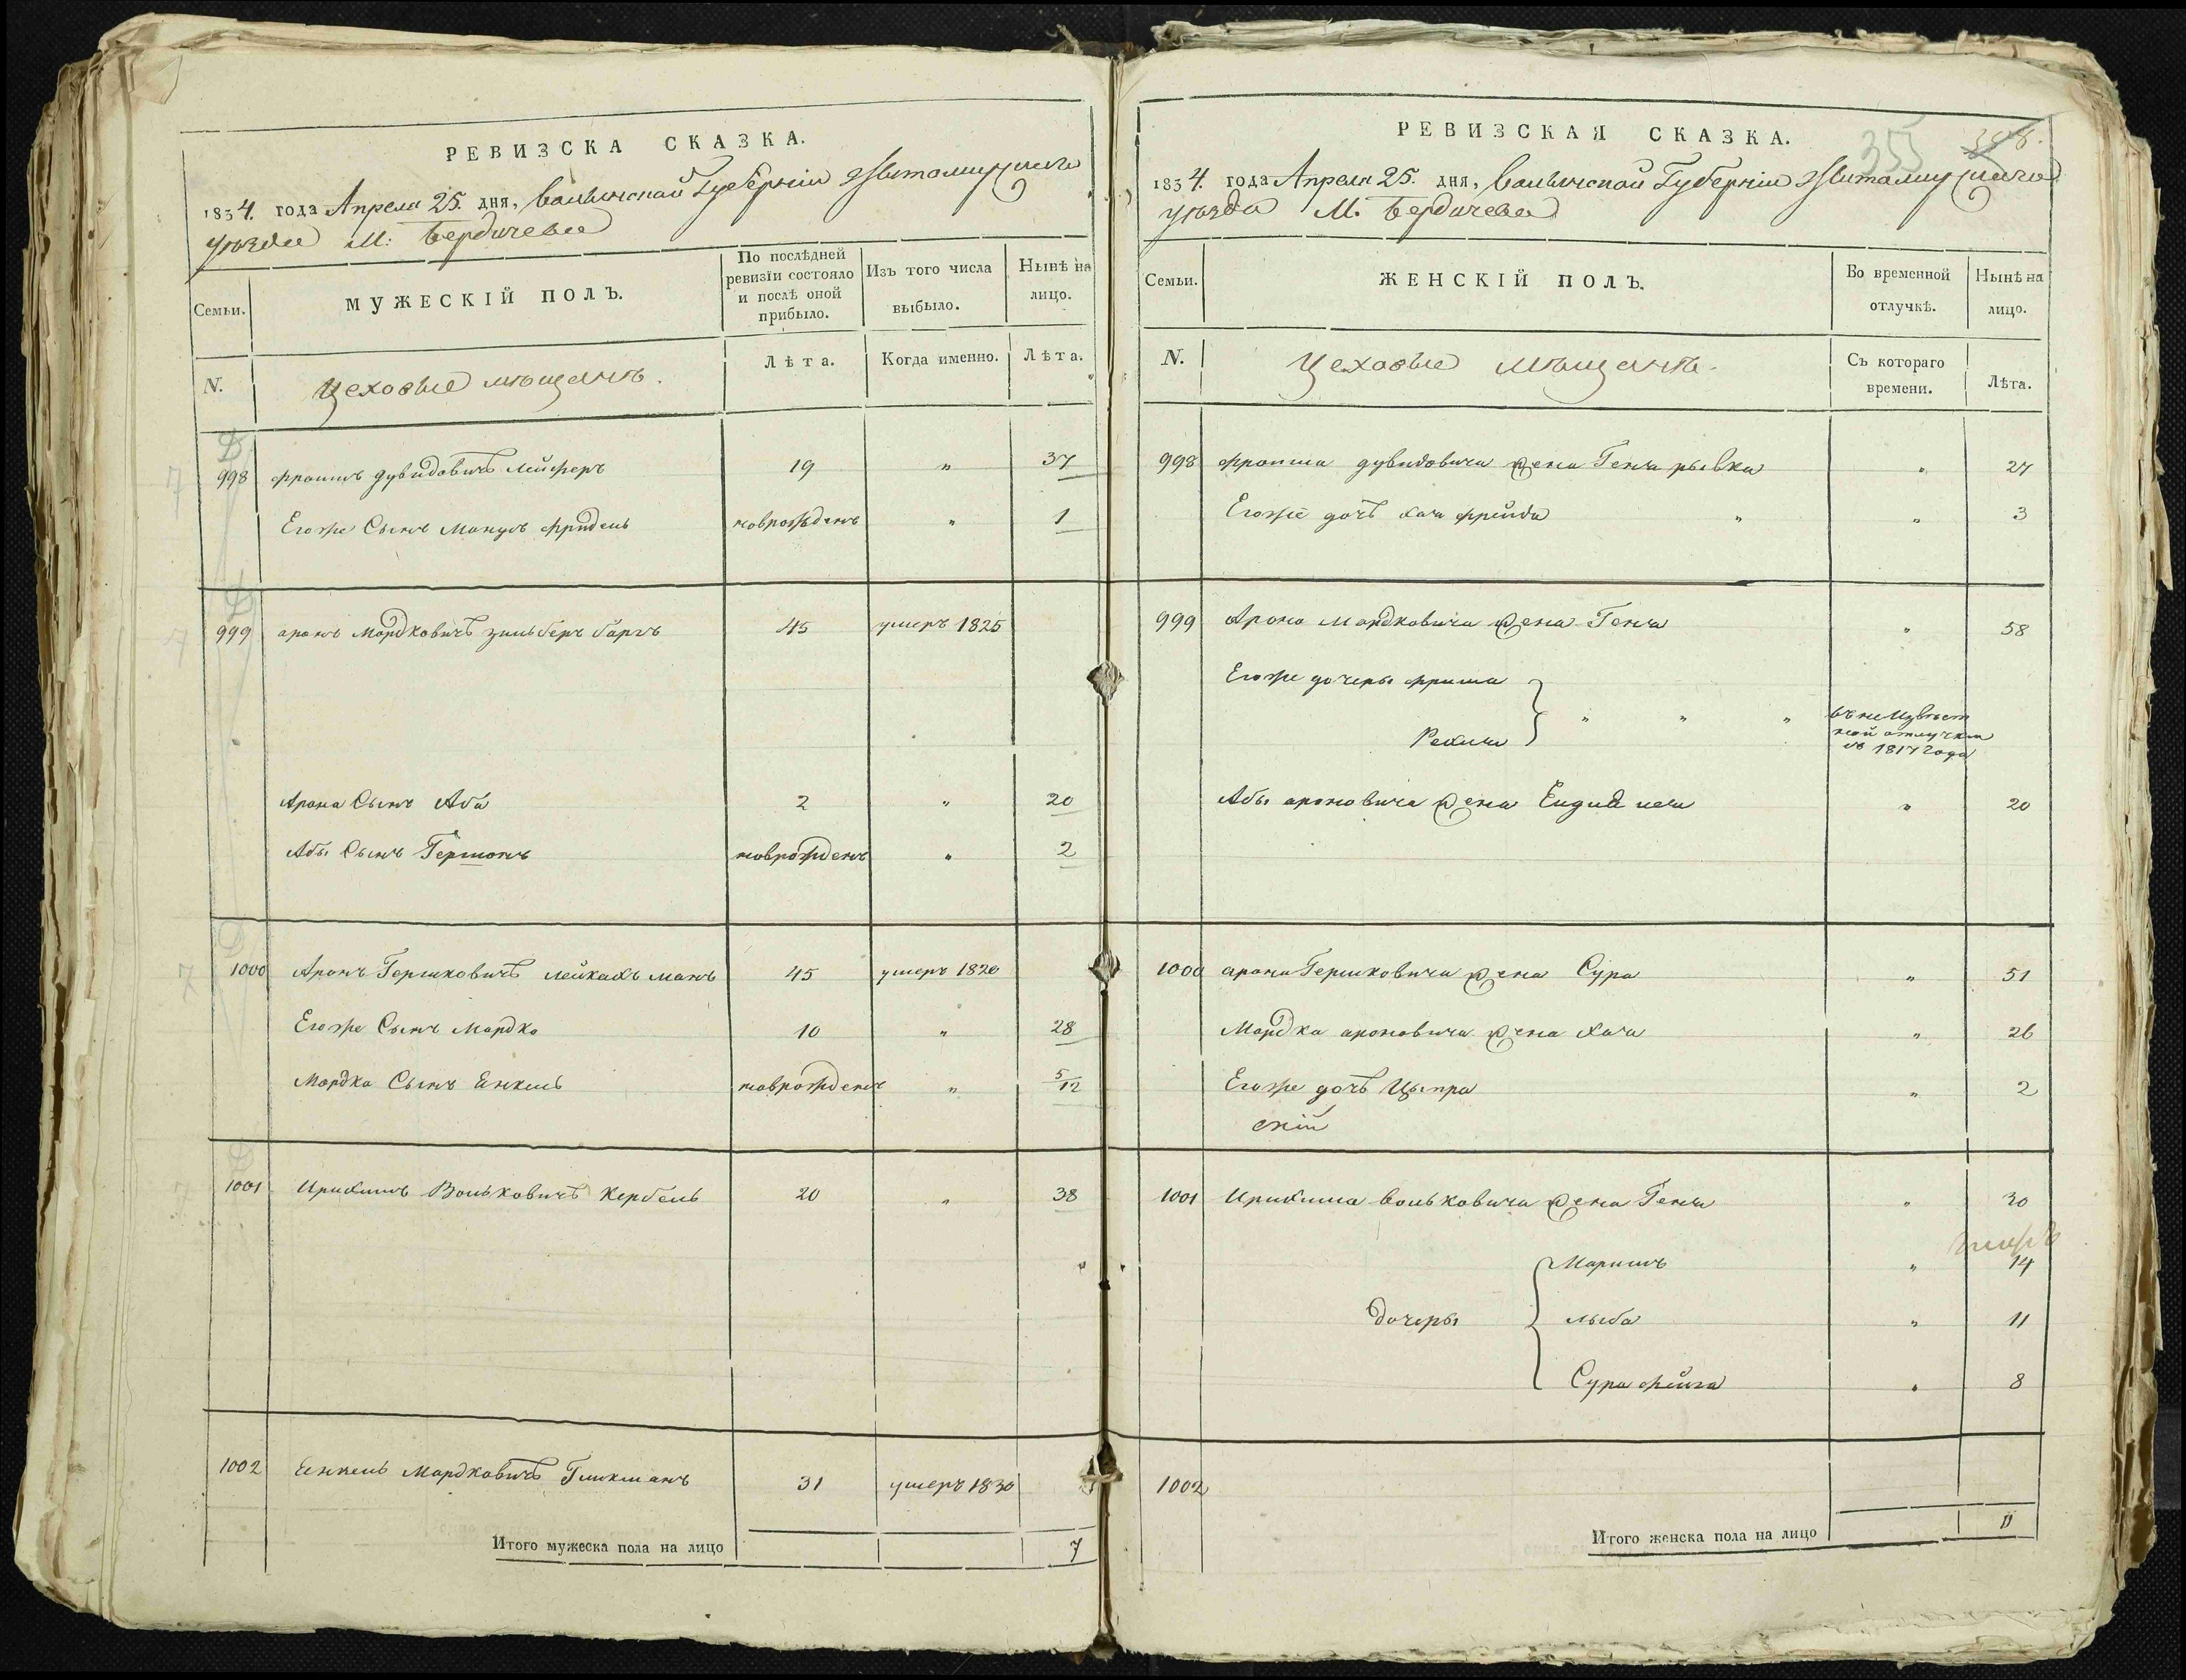 РЕВИЗСКА СКАЗКА.
1834. года Апреля 25. дня, Волынской Губерніи Житомирскаго
уѣзда М: Бердичева
Семьи.
МУЖЕСКІЙ ПОЛЪ.
По послѣдней
ревизіи состояло
и послѣ оной
прибыло.
Изъ того числа
выбыло.
Нынѣ на
лицо.
N.
Цеховые мѣщанѣ.
Лѣта.
Когда именно.
Лѣта.
998 Фроимъ Дувидовичъ Лейферъ 19 " 37
Егоже Сынъ Манусъ Фридель новрожденъ " 1
999 аронъ Мордковичъ зильберъ баргъ 45 умеръ 1825
Арона Сынъ Аба 2 " 20
Абы Сынъ Гершонъ новрожденъ " 2
1000 Аронъ Гершковичъ Лейкахъ манъ 45 умеръ 1820
Егоже Сынъ Мордко 10 " 28
Мордка Сынъ Енкель новрожденъ " 5/12
1001 Ирихимъ Вольковичъ Кербель 20 " 38
1002 Енкель Мордковичъ Гликманъ 31 умеръ 1830
Итого мужеска пола на лицо 7
РЕВИЗСКАЯ СКАЗКА.
355
1834. года Апреля 25. дня, Волынской Губерніи Житомирскаго
уѣзда М. Бердичева
Семьи.
ЖЕНСКІЙ ПОЛЪ.
Во временной
отлучкѣ.
Нынѣ на
лицо.
N.
Цеховые мѣщанѣ.
Съ котораго
времени.
Лѣта.
998 Фроима дувидовича жена Геня рывка " 27
Егоже дочъ Хая фрейда " " 3
999 Арона Мордковича жена Геня " 58
Егоже дочеры фрима
} " " " въ неизвѣст
ной отлучки
съ 1817 года
Абы ароновича жена 20
1000 арона Гершковича жена Сура " 51
Мордка ароновича жена Хая " 26
Егоже дочъ Цыпра " 2
1001 Ирихима вольковича жена Геня " 30
Маримъ " 14
Дочеры { лыба " 11
Сура фейга " 8
1002
Итого женска пола на лицо 11